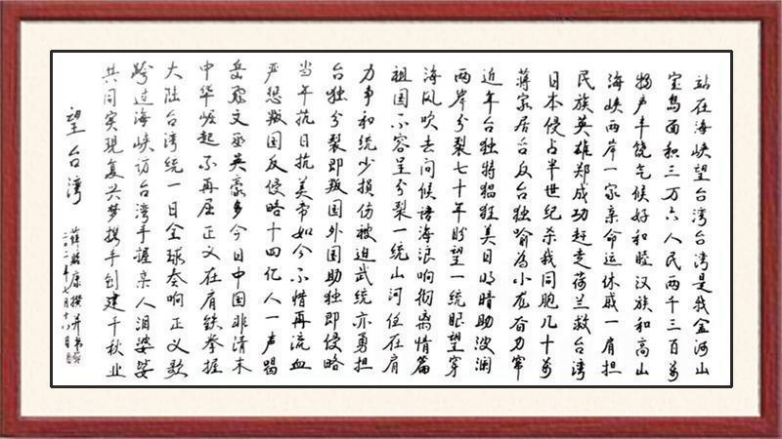 站在海峡望台湾台湾是我金河山
宝岛面积三万六人民两千三百万
物产丰饶气候好和睦汉族和高山
海峡两岸一家亲命运休戚一肩担
民族英雄郑成功赶走荷兰救台湾
日本侵占半世纪杀我同胞几十万
蒋家居台反台独喻为小龙奋力窜
近年台独特猖狂美日明暗助波澜
两岸分裂七十年盼望一统眼望穿
海风吹去问候语海浪响彻离情篇
祖国不容呈分裂一统山河任在肩
力争和统少损伤被迫武统亦勇担
台独分裂即叛国外国助独即侵略
当年抗日抗美帝如今不惜再流血
严惩叛国反侵略十四亿人一声喝
岳飞文丞英豪多今日中国非清末
中华崛起不再屈正义在肩铁拳握
大陆台湾统一日全球奏响正义歌
跨过海峡访台湾手握亲人泪婆娑
共同实现复兴梦携手创建千秋业
望台湾
薛康撰并书
年七月十八日